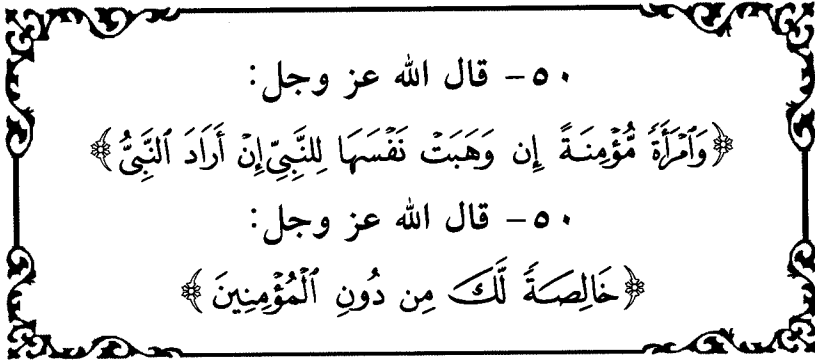 ٥٠- قال الله عز وجل:
﴿وَٱمْرَأَةً مُّؤْمِنَةً إِن وَهَبَتْ نَفْسَهَا لِلنَّبِيِّ إِنْ أَرَادَ ٱلنَّبِيُّ﴾
٥٠- قال الله عز وجل:
﴿خَالِصَةً لَّكَ مِن دُونِ ٱلْمُؤْمِنِينَ﴾